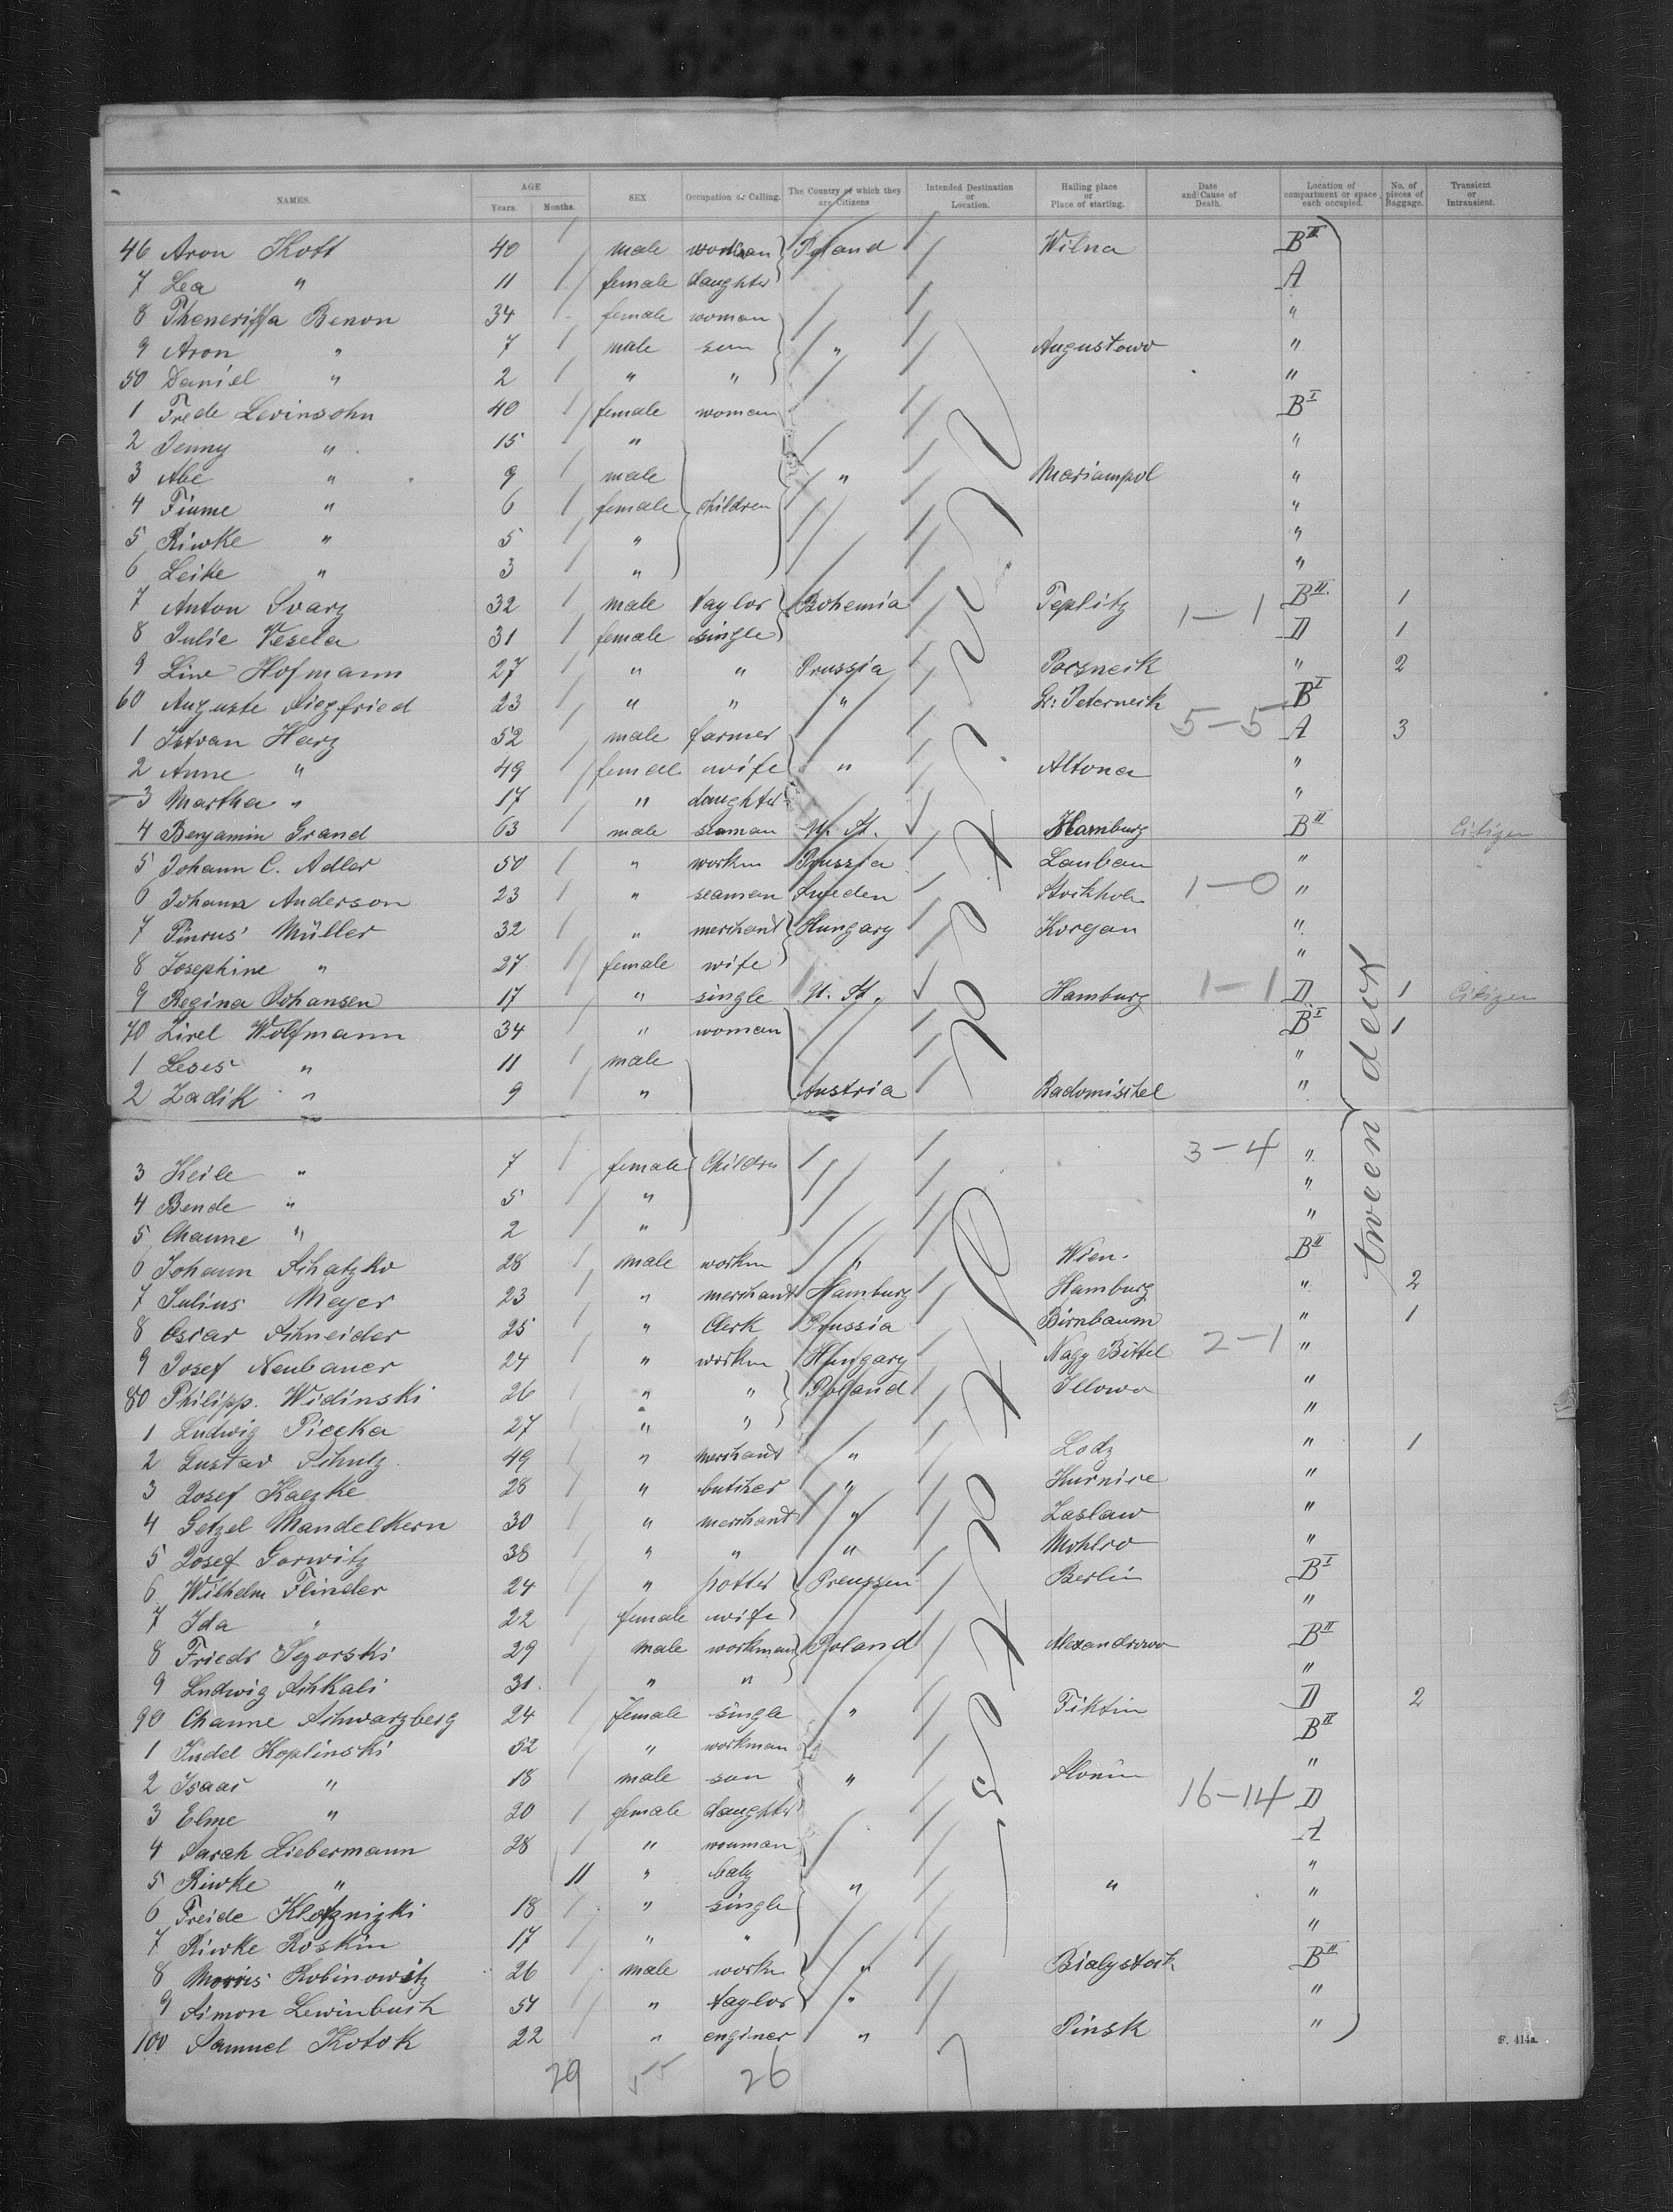 NAMES. AGE Years. Months. SEX Occupation or Calling. The Country of which they are Citizens Intended Destination or Location. Hailing place or Place of starting. Date and Cause of Death. Location of compartment or space each occupied. No. of pieces of Baggage. Transient or Intransient.
46 Aron Kott 40 male Poland Wilna B II
7 Lea " 11 female daughter A
8 Benon 34 female woman "
9 Aron " 7 male son " Augustowo "
50 Daniel " 2 " " "
1 Frede Levinsohn 40 female woman B I
2 Jenny " 15 " "
3 Abe " 9 male " Mariampol "
4 Fiume " 6 female children "
5 Riwke " 5 " "
6 Leike " 3 " "
7 Anton Svarz 32 male taylor Bohemia Teplitz 1-1 B II 1
8 Julie Vesela 31 female single D 1
9 Line Hofmann 27 " " Prussia Poesneck " 2
60 Auguste Siegfried 23 " " " Gr. Peterneck 5-5 B I
1 Istvan Harz 52 male farmer A 3
2 Anne " 49 female wife " Altona "
3 Martha " 17 " daughter "
4 Benjamin Grand 63 male seaman U. St. Hamburg B II Citizen
5 Johann C. Adler 50 " workm Prussia Lauban "
6 Johann Anderson 23 " seaman Sweden Stockholm 1-0 "
7 Pincus Müller 32 " merchant Hungary Korgan "
8 Josephine " 27 female wife "
9 Regina Johansen 17 " single U. St. Hamburg 1-1 D 1 Citizen
70 Zirel Wolfmann 34 " woman B I 1
1 Leses " 11 male "
2 Zadik " 9 " Austria Radomischel "
3 Keile " 7 female Children 3-4 "
4 Bende " 5 " "
5 Channe " 2 " "
6 Johann Schatzko 28 male workm " Wien. B II
7 Julius Meyer 23 " merchant Hamburg Hamburg " 2
8 Oscar Schneider 25 " Clerk Prussia Birnbaum " 1
9 Josef Neubauer 24 " workm Hungary Nagy Bittel 2-1 "
80 Philipp. Widinski 26 " " Poland Illowo "
1 Ludwig Piecka 27 " " "
2 Gustav Schulz 49 " merchant " Lodz " 1
3 Josef Kaczke 28 " butcher " Kurnice "
4 Getzel Mandelkern 30 " merchant " Zaslaw "
5 Josef Gorwitz 38 " " " Mohlew "
6 Wilhelm Flinder 24 " potter Preussen Berlin B I
7 Ida " 22 female wife "
8 Friedr Segorski 29 male workman Poland Alexandrowo B II
9 Ludwig Schkali 31 " " "
90 Channe Schwarzberg 24 female single " Tiktin D 2
1 Judel Koplinski 52 " workman B II
2 Isaac " 18 male son " Slonim "
3 Elme " 20 female daughter 16-14 D
4 Sarah Liebermann 28 " wouman A
5 Riwke " 11 " baby " " "
6 Freide Klotznizki 18 " single "
7 Riwke Roskin 17 " " "
8 Morris Robinowitz 26 male workm " Bialystock B II
9 Simon Lewinbuch 51 " taylor " "
100 Samuel Kotok 22 " enginer " Pinsk "
29 55 26
New York
tween deck
F. 414a.